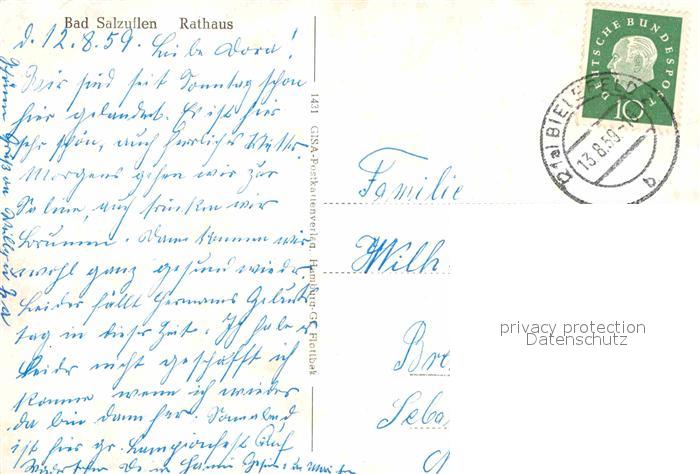 Bad Salzuflen Rathaus
d. 12.8.59. Liebe Dora!
Wir sind seit Sonntag schon
hier gelandet. Es ist hier
sehr schön, auch herrliches Wetter.
Morgens gehen wir zur
Saline, auch trinken wir
Brunnen. Dann kommen wir
wohl ganz gesund wieder.
Leider fällt Hermanns Geburts
tag in diese Zeit. Ich habe es
leider nicht geschafft ich
komme wenn ich wieder
da bin dann her. Sonnabend
ist hier gr. Lampionfest Auf
Wiedersehen
1431 GISA-Postkartenverlag, Hamburg-Gr. Flottbek
DEUTSCHE BUNDESPOST
10
(21a) BIELEFELD
13.8.59
b
Familie
Wilh
Bre
Seba
privacy protection
Datenschutz